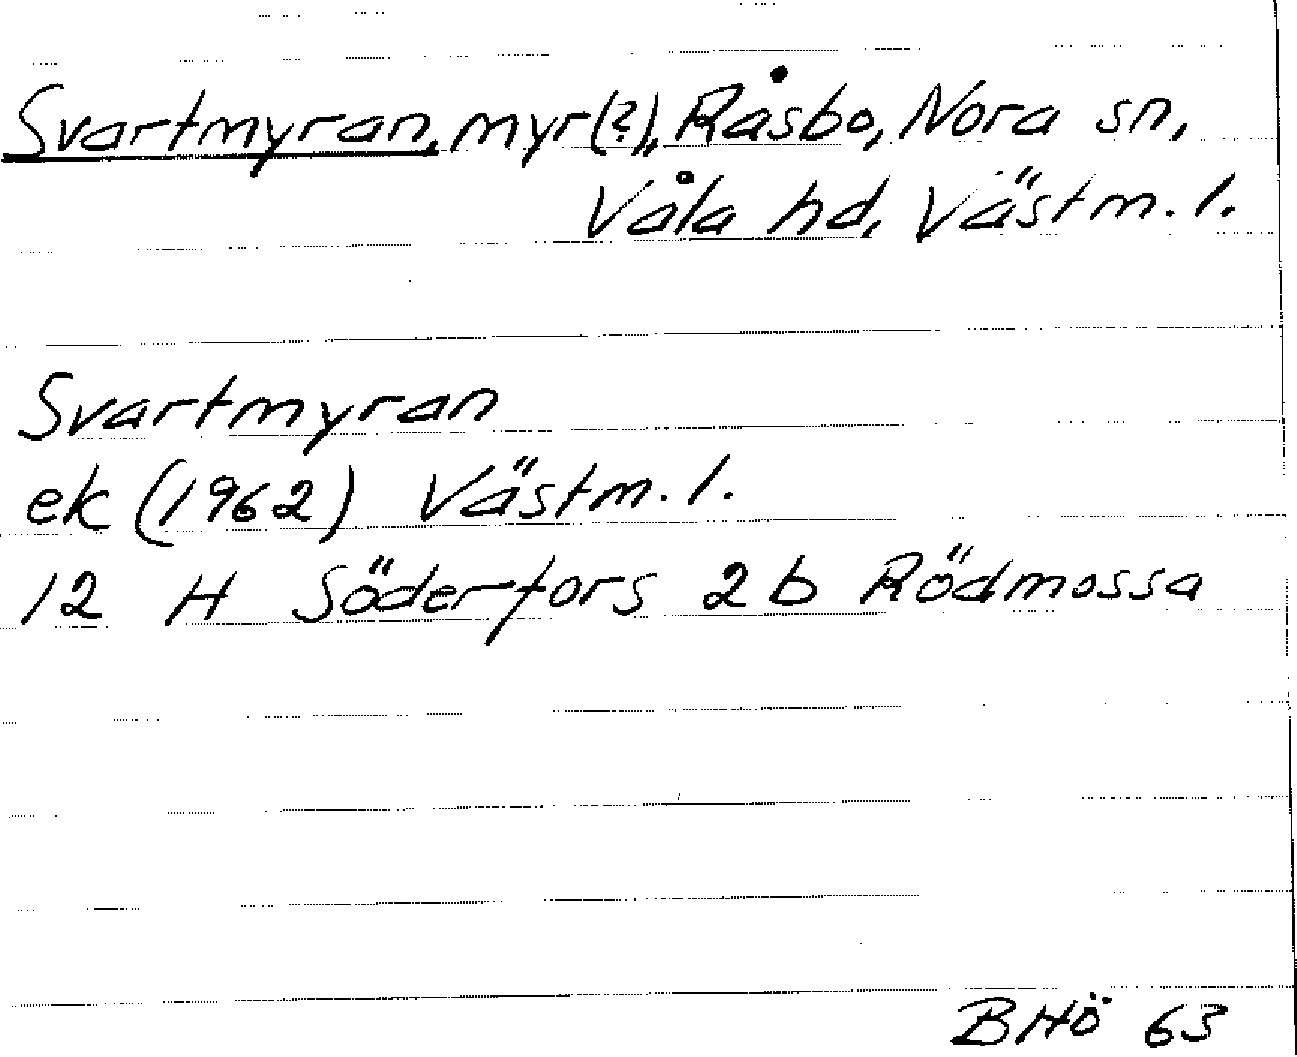 Svartmyran, myr(?), Råsbo, Nora sn,
Våla hd, Västm. l.
Svartmyran
ek (1962) Västm. l.
12 H Söderfors 2 b Rödmossa
BHö 63